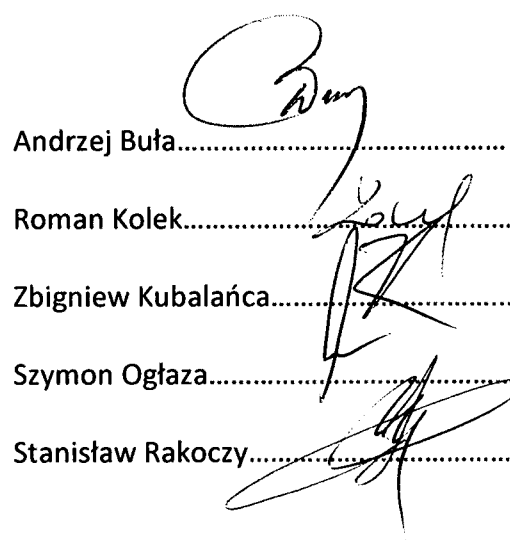 Andrzej Buła................................................
Roman Kolek................................................
Zbigniew Kubalańca...................................
Szymon Ogłaza............................................
Stanisław Rakoczy......................................